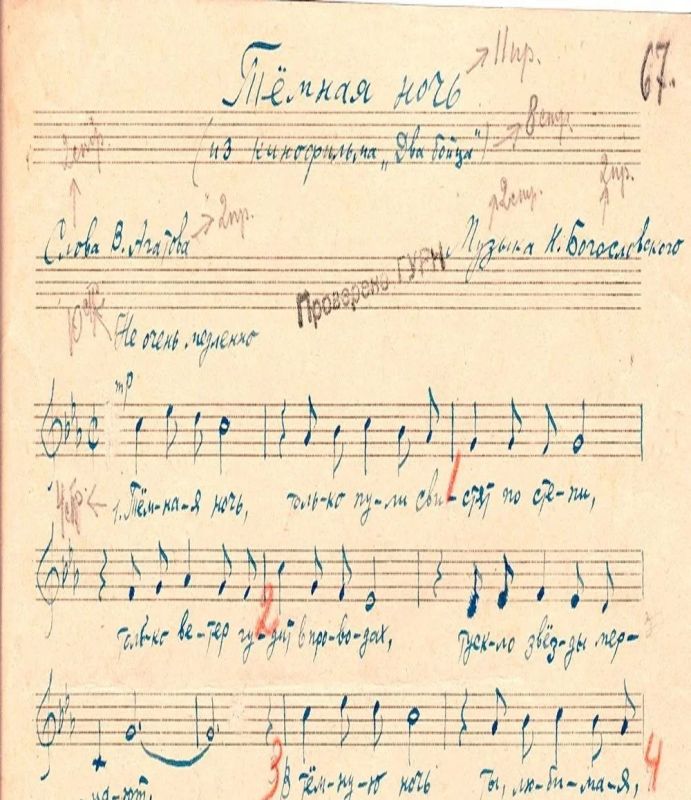 67.
Тёмная ночь → 11пр.
(из кинофильма „Два бойца") → 8стр.
2стр. 2стр. 2пр.
Слова В. Агатова → 2пр. Музыка Н. Богословского
Проверено ГУРК
Не очень медленно
mp
1. Тём-на-я ночь, толь-ко пу-ли сви-стят по сте-пи,
1
толь-ко ве-тер гу-дит в про-во-дах, туск-ло звёз-ды мер-
2
ца-ют. В тём-ну-ю ночь ты, лю-би-ма-я,
3 4